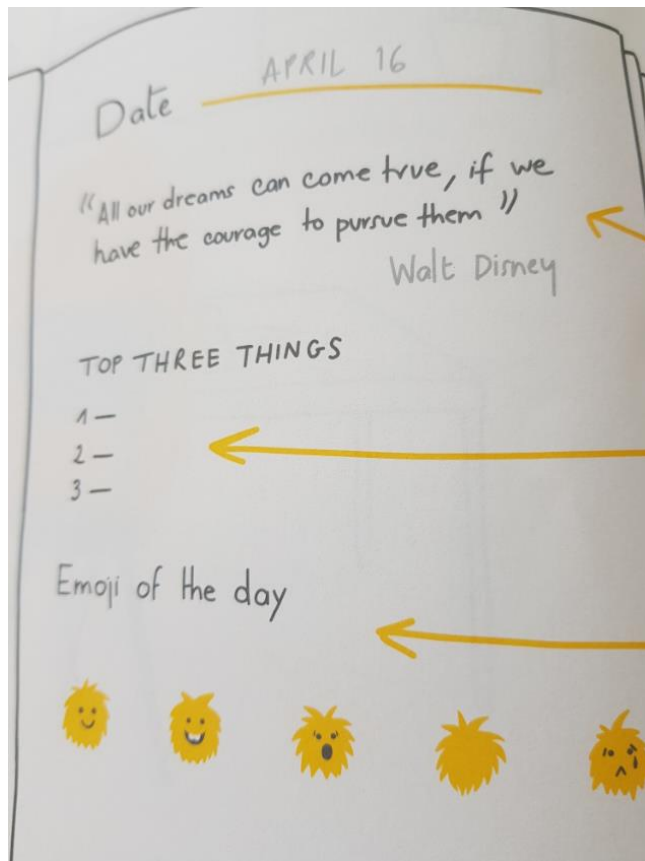 Date APRIL 16
"All our dreams can come true, if we
have the courage to pursue them"
Walt Disney
TOP THREE THINGS
1 —
2 —
3 —
Emoji of the day